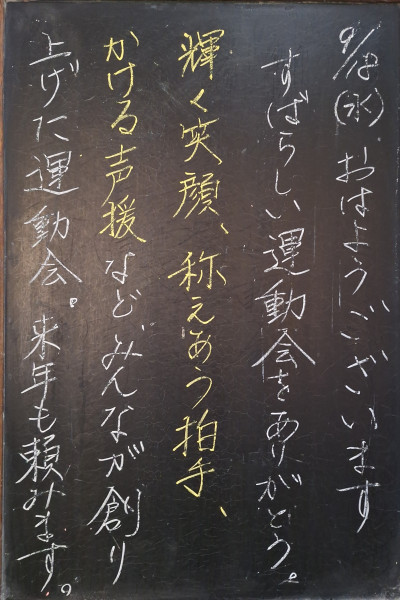 9/18(水) おはようございます
すばらしい運動会をありがとう。
輝く笑顔、称えあう拍手、
かける声援など、みんなが創り
上げた運動会。来年も頼みます。